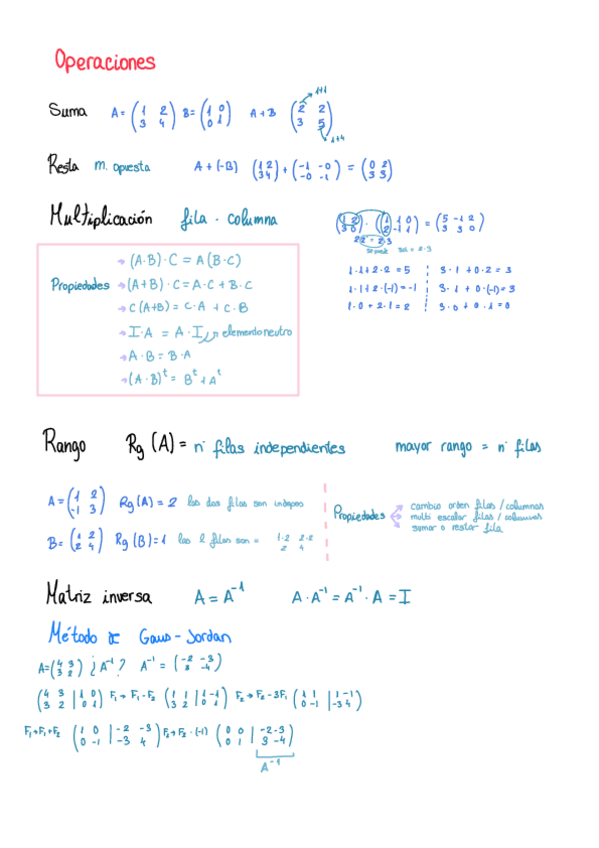 Operaciones
1+1
Suma A = (1 2 / 3 4) B = (1 0 / 0 1) A + B (2 2 / 3 5)
1+4
Resta m. opuesta A + (-B) (1 2 / 3 4) + (-1 -0 / -0 -1) = (0 2 / 3 3)
Multiplicación · fila · columna
(1 2 / 3 0) · (1 1 0 / 2 -1 1) = (5 -1 2 / 3 3 0)
Propiedades
→ (A·B)·C = A(B·C)
→ (A+B)·C = A·C + B·C
→ C(A+B) = C·A + C·B
→ I·A = A·I → elemento neutro
→ A·B = B·A
→ (A·B)^t = B^t + A^t
1·1+2·2 = 5 3·1 + 0·2 = 3
1·1+2·(-1) = -1 3·1 + 0·(-1) = 3
1·0 + 2·1 = 2 3·0 + 0·1 = 0
Rango Rg (A) = nº filas independientes mayor rango = nº filas
A = (1 2 / -1 3) Rg (A) = 2 las dos filas son indepen
B = (1 2 / 2 4) Rg (B) = 1 las 2 filas son = 1·2 2·2 / 2 4
Propiedades
cambio orden filas / columnas
multi escalar filas / columnas
sumar o restar fila
Matriz inversa A = A^-1 A·A^-1 = A^-1·A = I
Método de Gaus - Jordan
A = (4 3 / 3 2) ¿A^-1? A^-1 = (-2 -3 / 3 -4)
(4 3 | 1 0 / 3 2 | 0 1) F1 → F1 - F2 (1 1 | 1 -1 / 3 2 | 0 1) F2 → F2 - 3F1 (1 1 | 1 -1 / 0 -1 | -3 4)
F1→F1+F2 (1 0 | -2 -3 / 0 -1 | -3 4) F2→F2·(-1) (0 0 | -2 -3 / 0 1 | 3 -4)
A^-1